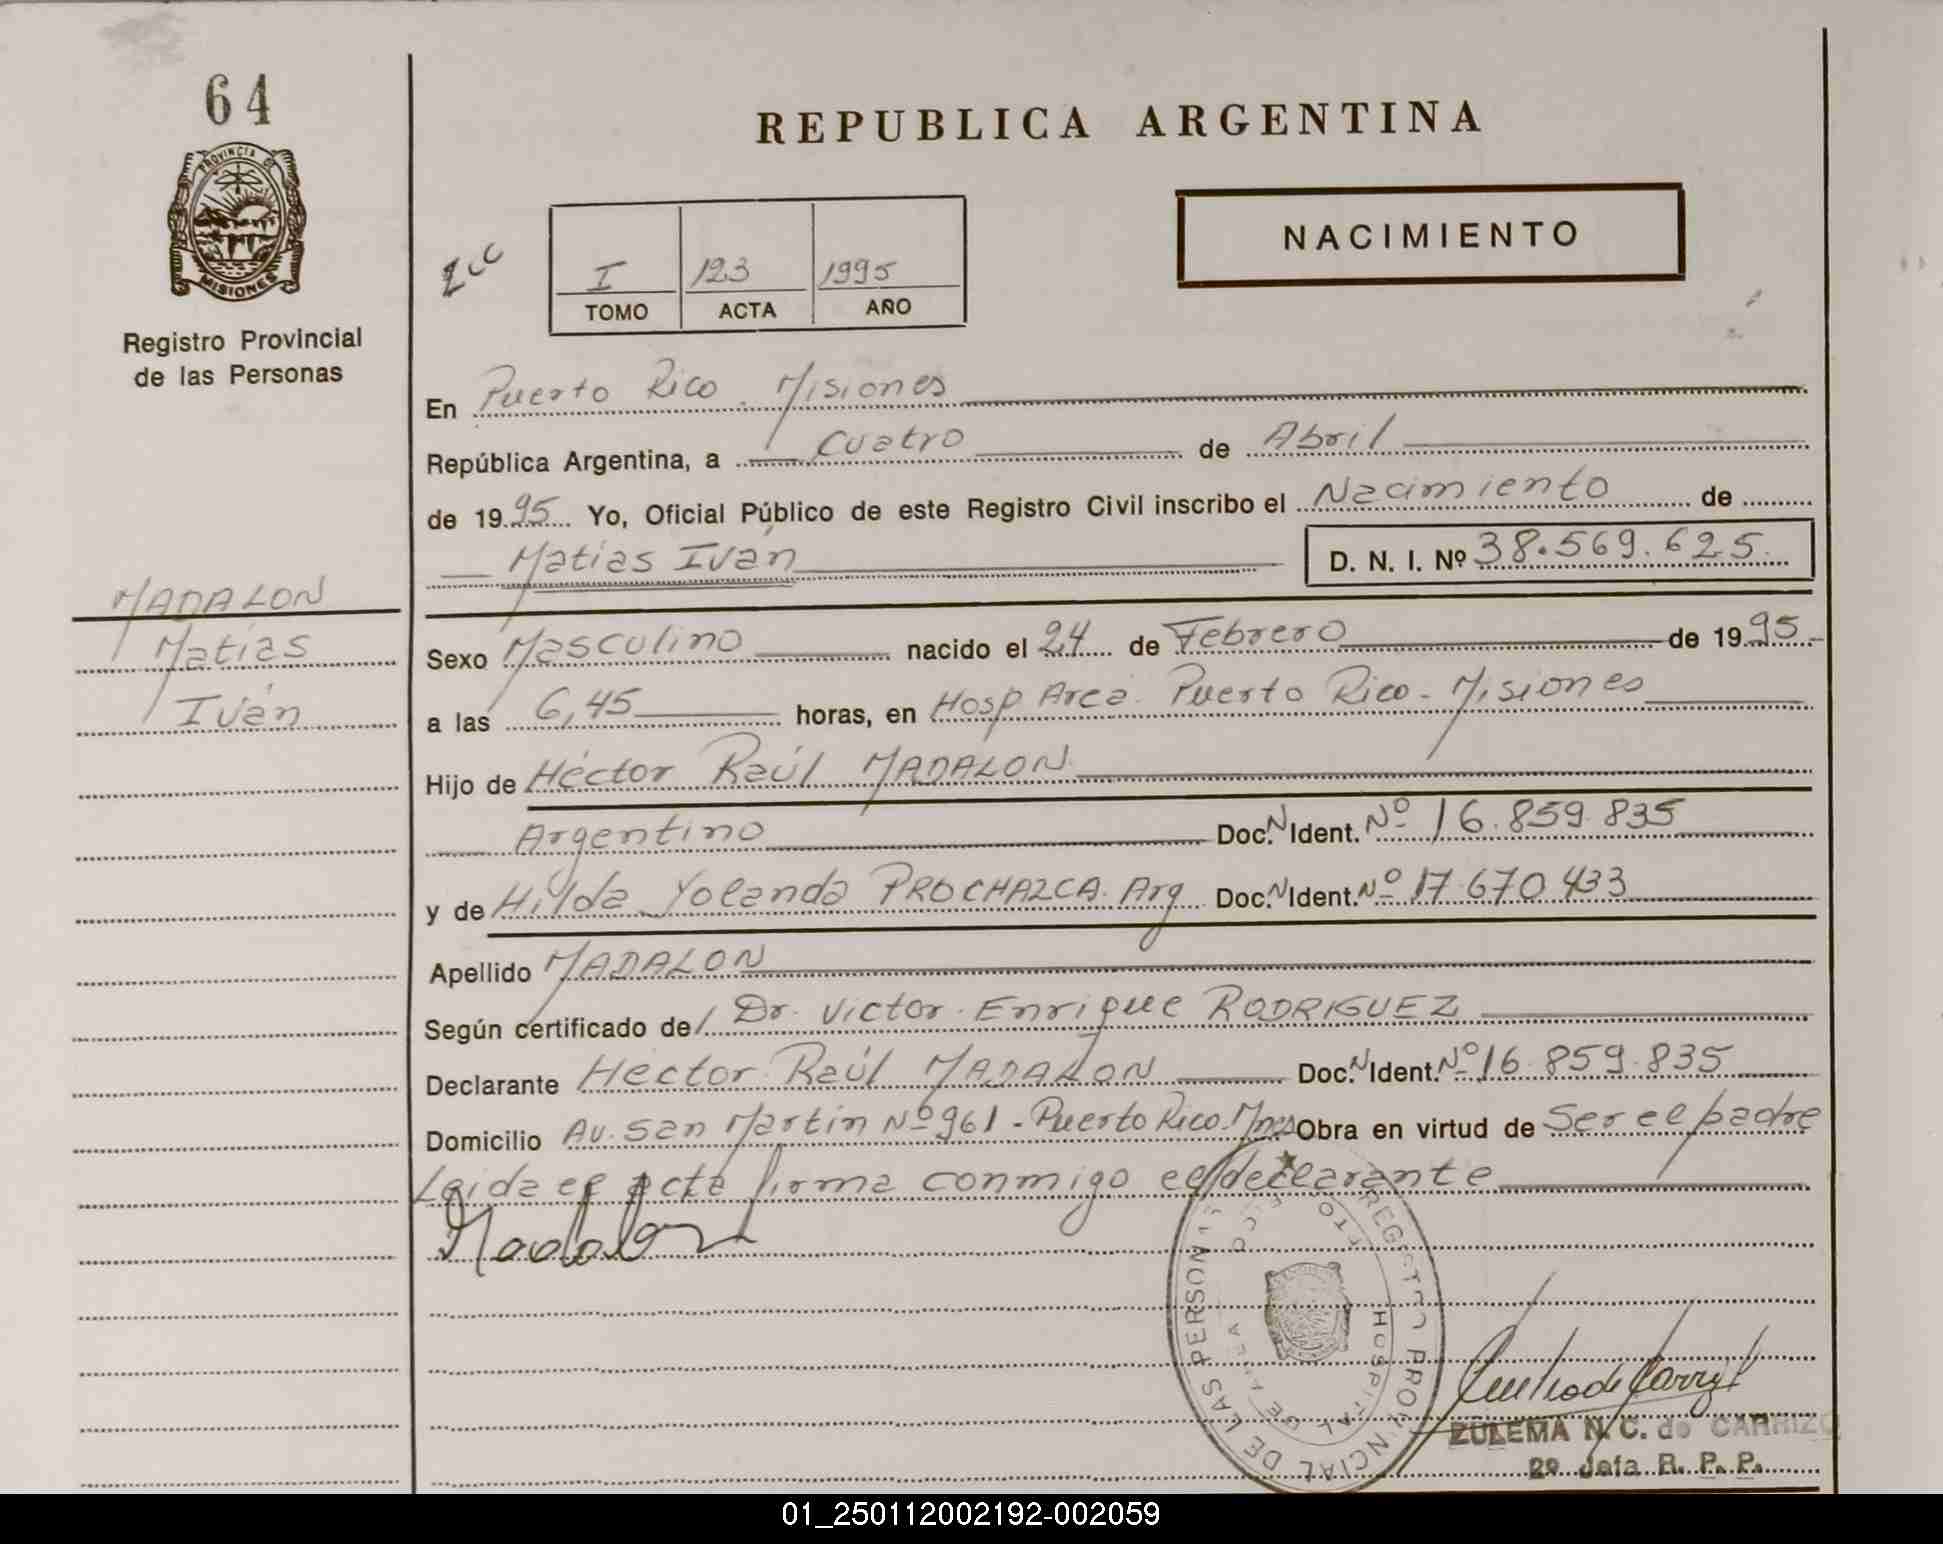 64
PROVINCIA DE
MISIONES
Registro Provincial
de las Personas
REPUBLICA ARGENTINA
NACIMIENTO
I 123 1995
TOMO ACTA AÑO
En Puerto Rico. Misiones
República Argentina, a Cuatro de Abril
de 1995 Yo, Oficial Público de este Registro Civil inscribo el Nacimiento de
Matías Iván D. N. I. Nº 38.569.625
MADALON
Matías
Iván
Sexo Masculino nacido el 24 de Febrero de 1995
a las 6,45 horas, en Hosp Area. Puerto Rico - Misiones
Hijo de Héctor Raúl MADALON
Argentino Doc. N Ident. Nº 16.859.835
y de Hilda Yolanda PROCHAZCA. Arg Doc. N Ident. Nº 17.670.433
Apellido MADALON
Según certificado de Dr. Victor Enrique RODRIGUEZ
Declarante Hector Raúl MADALON Doc. N Ident. Nº 16.859.835
Domicilio Av. San Martín Nº 961 - Puerto Rico. Mnes Obra en virtud de Ser el padre
Leída el acta firma conmigo el declarante
Madalon
REGISTRO PROVINCIAL DE LAS PERSONAS
HOSPITAL DE AREA
ZULEMA N. C. de CARRIZO
2º Jefa R. P. P.
01_250112002192-002059